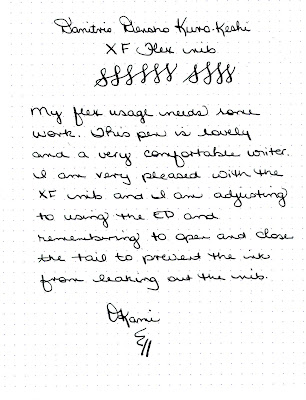 Danitrio Densho Kuro-Keshi
XF Flex nib
My flex usage needs some
work. This pen is lovely
and a very comfortable writer.
I am very pleased with the
XF nib and I am adjusting
to using the ED and
remembering to open and close
the tail to prevent the ink
from leaking out the nib.
OKami